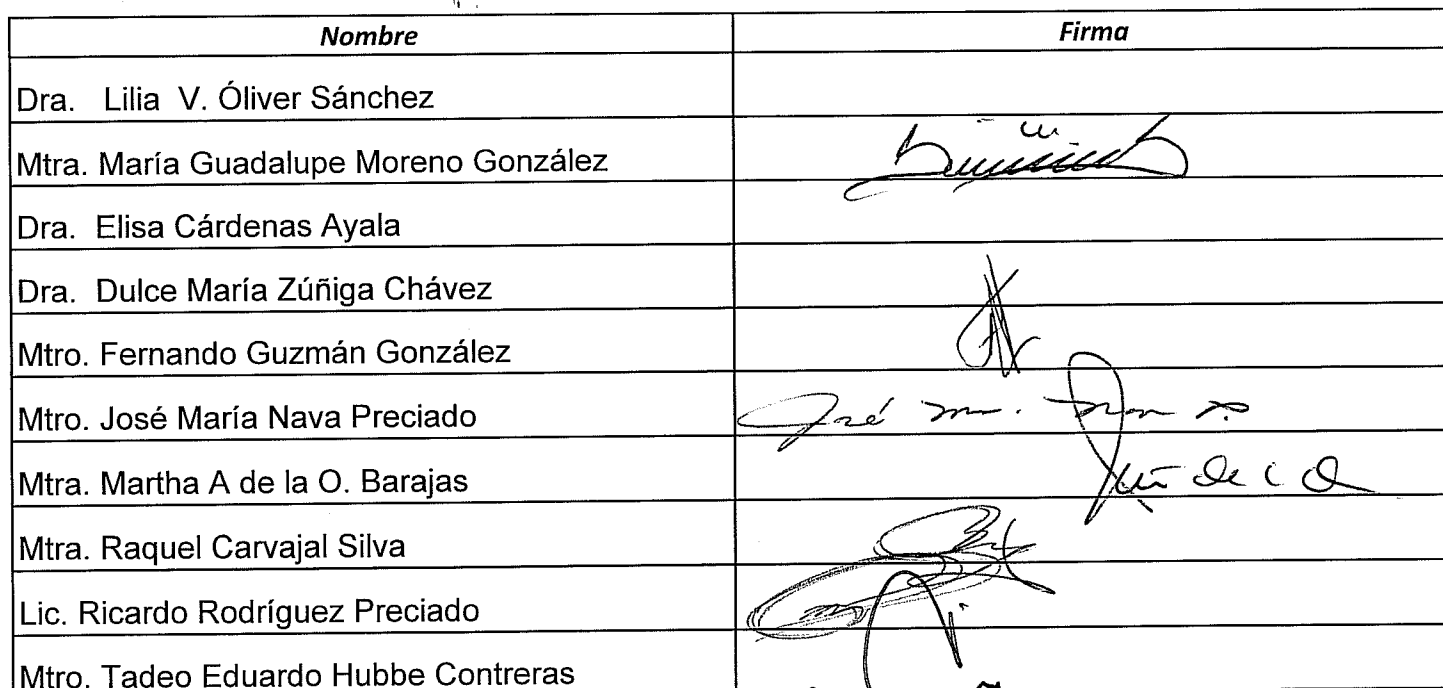 Nombre Firma
Dra. Lilia V. Óliver Sánchez
Mtra. María Guadalupe Moreno González
Dra. Elisa Cárdenas Ayala
Dra. Dulce María Zúñiga Chávez
Mtro. Fernando Guzmán González
Mtro. José María Nava Preciado José
Mtra. Martha A de la O. Barajas
Mtra. Raquel Carvajal Silva
Lic. Ricardo Rodríguez Preciado
Mtro. Tadeo Eduardo Hubbe Contreras